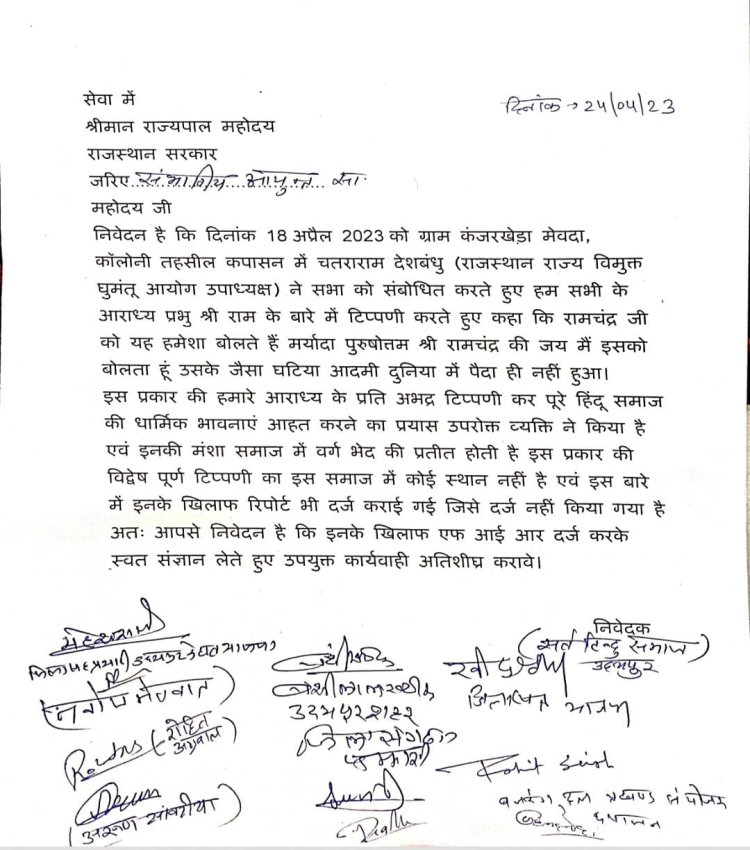 सेवा में
दिनांक → 24/04/23
श्रीमान राज्यपाल महोदय
राजस्थान सरकार
जरिए संभागीय आयुक्त सा.
महोदय जी
निवेदन है कि दिनांक 18 अप्रैल 2023 को ग्राम कंजरखेड़ा मेवदा,
कॉलोनी तहसील कपासन में चतराराम देशबंधु (राजस्थान राज्य विमुक्त
घुमंतू आयोग उपाध्यक्ष) ने सभा को संबोधित करते हुए हम सभी के
आराध्य प्रभु श्री राम के बारे में टिप्पणी करते हुए कहा कि रामचंद्र जी
को यह हमेशा बोलते हैं मर्यादा पुरुषोत्तम श्री रामचंद्र की जय मैं इसको
बोलता हूं उसके जैसा घटिया आदमी दुनिया में पैदा ही नहीं हुआ।
इस प्रकार की हमारे आराध्य के प्रति अभद्र टिप्पणी कर पूरे हिंदू समाज
की धार्मिक भावनाएं आहत करने का प्रयास उपरोक्त व्यक्ति ने किया है
एवं इनकी मंशा समाज में वर्ग भेद की प्रतीत होती है इस प्रकार की
विद्वेष पूर्ण टिप्पणी का इस समाज में कोई स्थान नहीं है एवं इस बारे
में इनके खिलाफ रिपोर्ट भी दर्ज कराई गई जिसे दर्ज नहीं किया गया है
अतः आपसे निवेदन है कि इनके खिलाफ एफ आई आर दर्ज करके
स्वत संज्ञान लेते हुए उपयुक्त कार्यवाही अतिशीघ्र करावे।
निवेदक
(सर्व हिन्दु समाज)
उदयपुर
उदयपुर शहर
(रोहित
अग्रवाल)
Rohit Singh
बजरंग दल प्रखण्ड संयोजक
(अरूण सांवरीया)